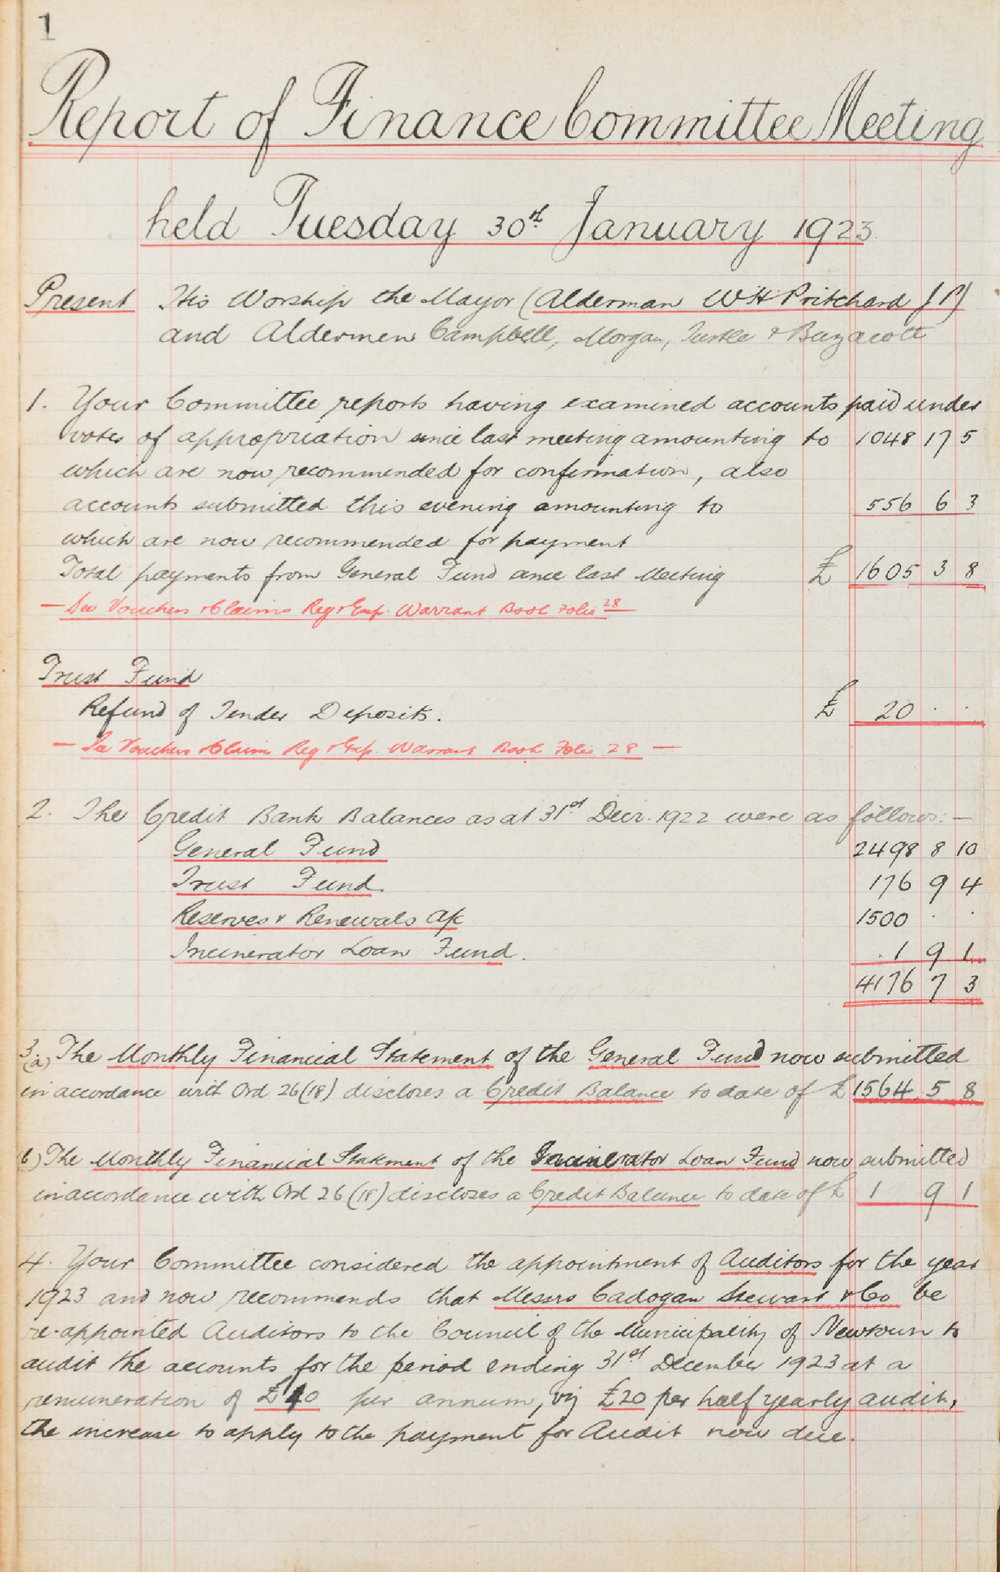 1
Report of Finance Committee Meeting
held Tuesday 30th January 1923
Present His Worship the Mayor (Alderman W H Pritchard J P)
and Aldermen Campbell, Morgan, Turtle & Bazacott
1. Your Committee reports having examined accounts paid under
votes of appropriation since last meeting amounting to 1048 17 5
which are now recommended for confirmation, also
accounts submitted this evening amounting to 556 6 3
which are now recommended for payment
Total payments from General Fund since last Meeting £ 1605 3 8
— See Vouchers & Claims Reg & Exp. Warrant Book Folio 28
Trust Fund
Refund of Tender Deposits. £ 20 . .
— See Vouchers & Claims Reg & Exp. Warrant Book Folio 28 —
2. The Credit Bank Balances as at 31st Decr. 1922 were as follows:—
General Fund 2498 8 10
Trust Fund. 176 9 4
Reserves & Renewals A/c 1500 . .
Incinerator Loan Fund. 1 9 1
4176 7 3
3. (a) The Monthly Financial Statement of the General Fund now submitted
in accordance with Ord 26(18) discloses a Credit Balance to date of £ 1564 5 8
(b) The Monthly Financial Statement of the Incinerator Loan Fund now submitted
in accordance with Ord 26(18) discloses a Credit Balance to date of £ 1 9 1
4. Your Committee considered the appointment of Auditors for the year
1923 and now recommends that Messrs Cadogan Stewart & Co be
re-appointed Auditors to the Council of the Municipality of Newtown to
audit the accounts for the period ending 31st December 1923 at a
remuneration of £40 per annum, viz £20 per half yearly audit,
the increase to apply to the payment for Audit now due.